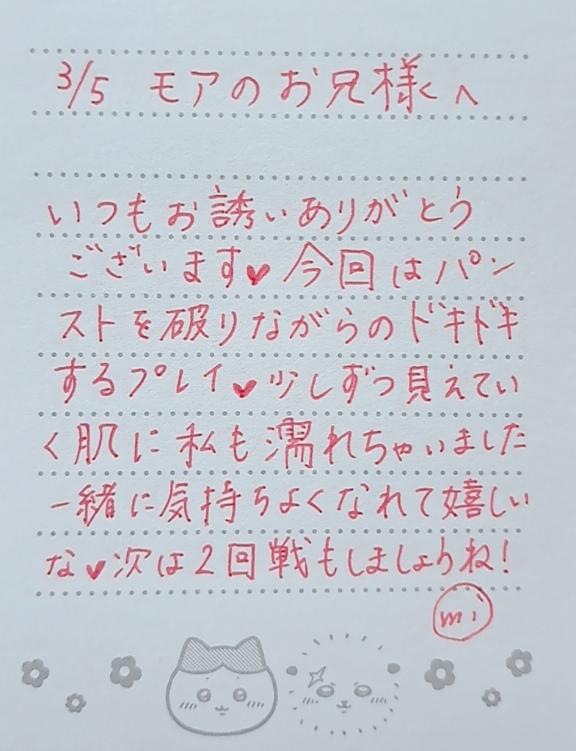 3/5 モアのお兄様へ
いつもお誘いありがとう
ございます♥今回はパン
ストを破りながらのドキドキ
するプレイ♥少しずつ見えてい
く肌に私も濡れちゃいました
一緒に気持ちよくなれて嬉しい
な♥次は2回戦もしましょうね!
mi